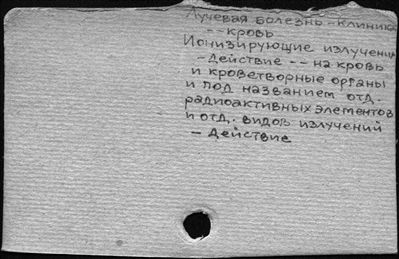 Лучевая болезнь - Клиника
-- кровь
Ионизирующие излучения
- Действие -- на кровь
и кроветворные органы
и под названием отд.
радиоактивных элементов
и отд. видов излучений
- Действие